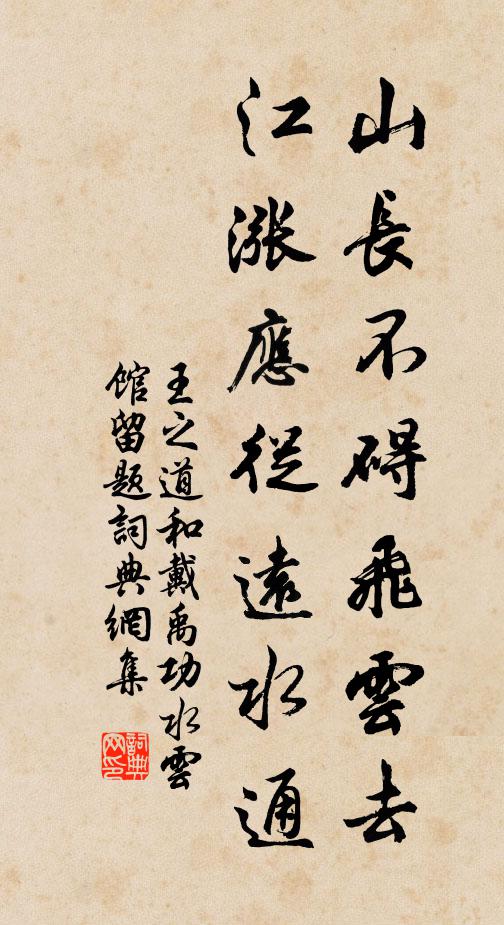 山長不碍飛雲去
江漲應從遠水通
王之道和戴禹功水雲
館留題詞典網集
詞典网印